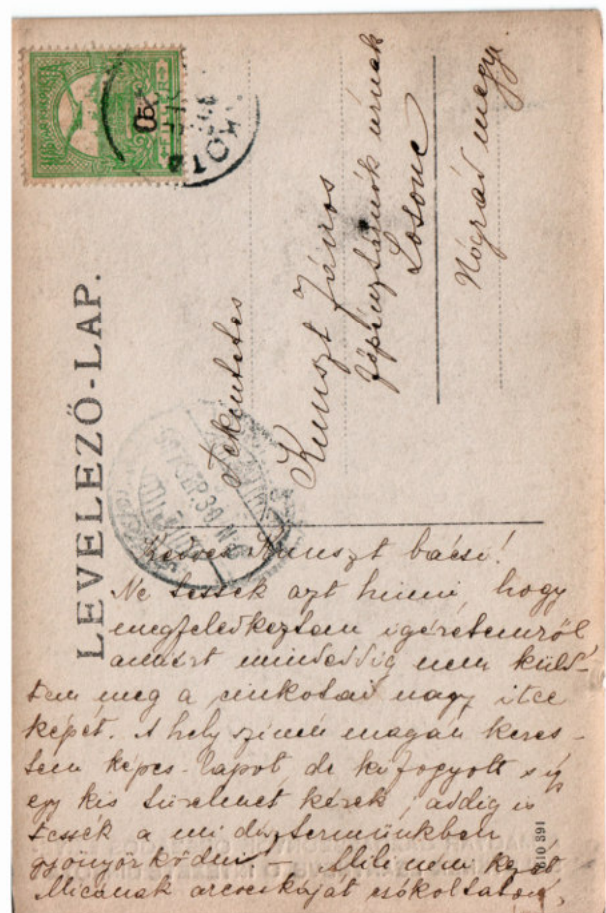 LEVELEZŐ-LAP.
Tekintetes
Kunszt János
főpénztárnok úrnak
Losonc
Nógrád megy.
Kedves Kunszt bácsi!
Ne tessék azt hinni, hogy
megfeledkeztem igéretemről
amiért mindeddig nem küld-
tem meg a cinkotai nagy itce
képet. A hely szinén magán keres-
tem képes-lapot, de kifogyott s így
egy kis türelmet kérek, addig is
tessék a mi dísztermünkben
gyönyörködni —
Micának arcocskáját csókoltatom,